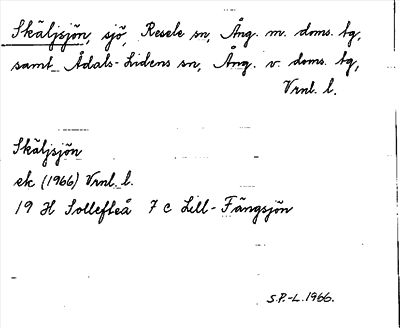 Skäljsjön, sjö, Resele sn, Ång. m. doms. tg,
samt Ådals-Lidens sn, Ång. v. doms. tg,
Vrnl. l.
Skäljsjön
ek (1966) Vrnl. l.
19 H Sollefteå 7 c Lill-Fängsjön
S.P.-L. 1966.